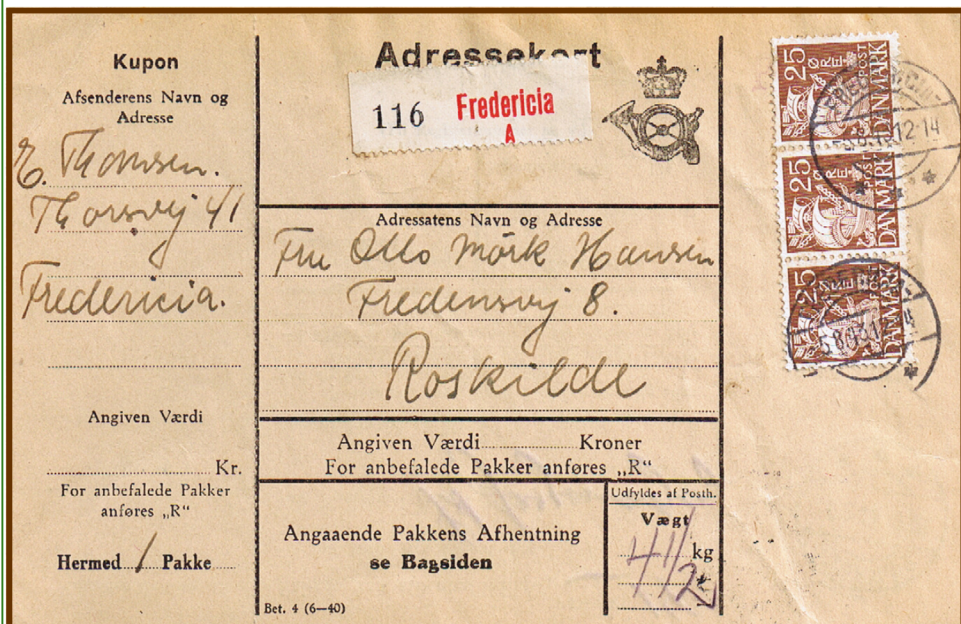 Kupon
Afsenderens Navn og
Adresse
E. Thomsen.
Thorsvej 41
Fredericia.
Angiven Værdi
Kr.
For anbefalede Pakker
anføres „R“
Hermed 1 Pakke
Adressekort
116 Fredericia
A
Adressatens Navn og Adresse
Fru Otto Mörk Hansen
Fredensvej 8.
Roskilde
Angiven Værdi Kroner
For anbefalede Pakker anføres „R“
Angaaende Pakkens Afhentning
se Bagsiden
Udfyldes af Posth.
Vægt
4 1/2 kg
Bet. 4 (6—40)
25 ØRE POST DANMARK
25 ØRE POST DANMARK
25 ØRE POST DANMARK
12-14